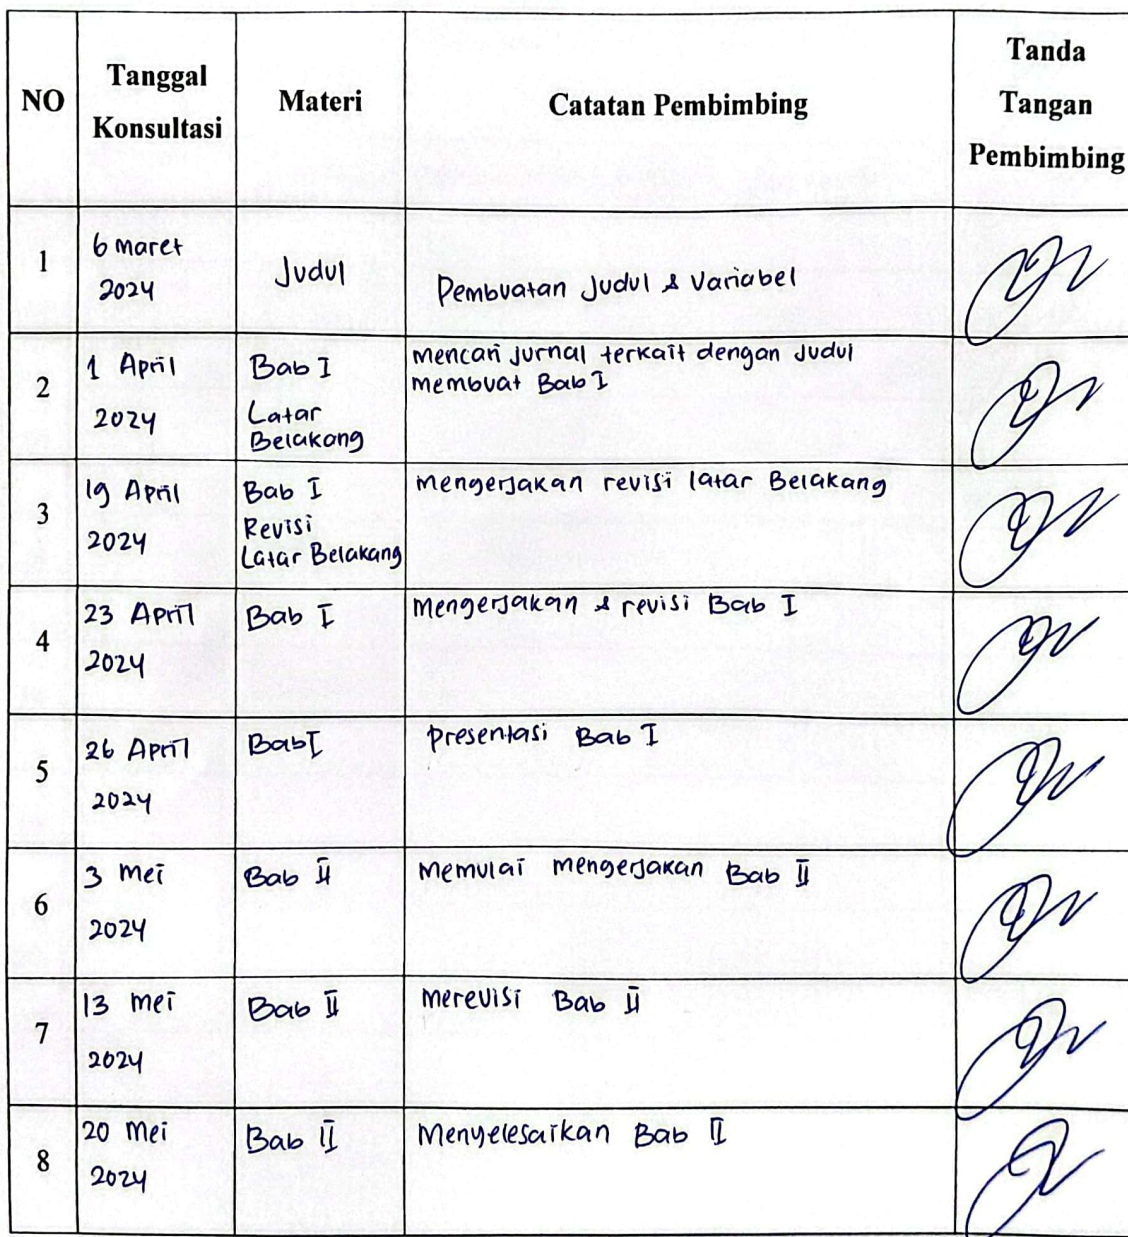 NO
Tanggal
Konsultasi
Materi
Catatan Pembimbing
Tanda
Tangan
Pembimbing
1
6 maret
2024
Judul
Pembuatan Judul & variabel
2
1 April
2024
Bab I
Latar
Belakang
mencari jurnal terkait dengan Judul
membuat Bab I
3
19 April
2024
Bab I
Revisi
Latar Belakang
mengerjakan revisi latar Belakang
4
23 April
2024
Bab I
Mengerjakan & revisi Bab I
5
26 April
2024
Bab I
presentasi Bab I
6
3 mei
2024
Bab II
Memulai mengerjakan Bab II
7
13 mei
2024
Bab II
merevisi Bab II
8
20 Mei
2024
Bab II
Menyelesaikan Bab II